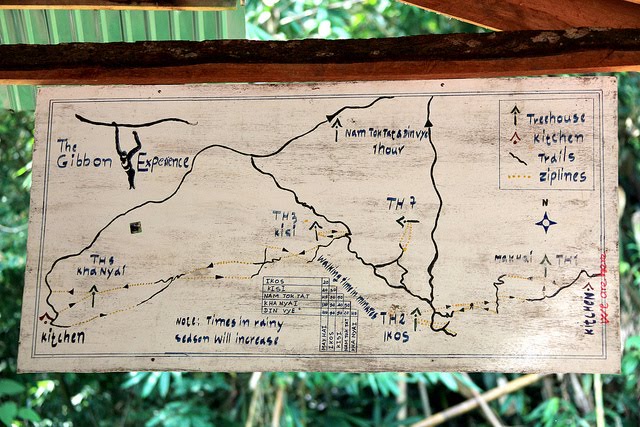 The
Gibbon Experience
Nam Tok Tat & Din Vye
1 hour
Treehouse
Kitchen
Trails
Ziplines
N
TH 7
TH 3
Kisi
TH 5
Kha Nyai
Makhai TH 1
Kitchen
Kitchen
We are here
TH 2
IKOS
Walking time in minutes
IKOS
KISI
NAM TOK TAT
KHA NYAI
DIN VYE
MAKHAI
IKOS
KISI
NAM TOK TAT
KHA NYAI
Note: Times in rainy
season will increase